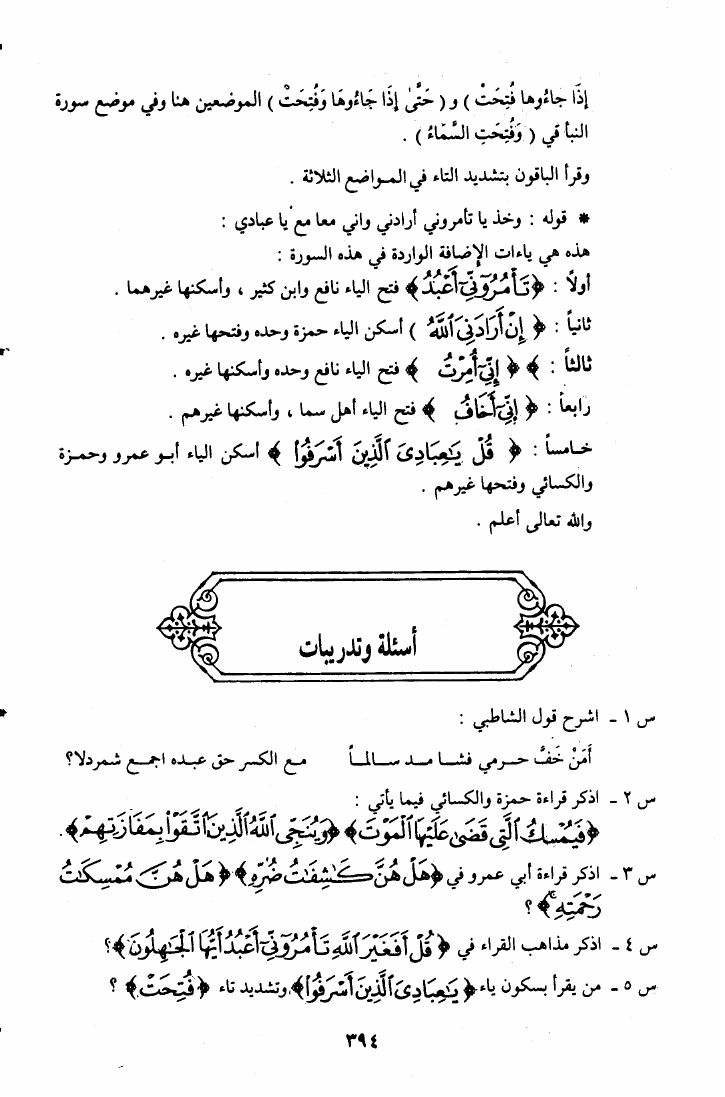 إذَا جَاءُوها فُتِحَتْ ) و ( حَتَّىٰ إذَا جَاءُوهَا وَفُتِحَتْ ) الموضعين هنا وفي موضع سورة
النبأ في ( وَفُتِحَتِ السَّمَاءُ ) .
وقرأ الباقون بتشديد التاء في المواضع الثلاثة .
* قوله : وخذ يا تأمروني أرادني واني معا مع يا عبادي :
هذه هي ياءات الإضافة الواردة في هذه السورة :
أولاً : ﴿ تَأْمُرُوٓنِّيٓ أَعْبُدُ ﴾ فتح الياء نافع وابن كثير ، وأسكنها غيرهما .
ثانياً : ﴿ إِنْ أَرَادَنِيَ ٱللَّهُ ) أسكن الياء حمزة وحده وفتحها غيره .
ثالثاً : ﴾ ﴿ إِنِّيٓ أُمِرْتُ ﴾ فتح الياء نافع وحده وأسكنها غيره .
رابعاً : ﴿ إِنِّيٓ أَخَافُ ﴾ فتح الياء أهل سما ، وأسكنها غيرهم .
خامساً : ﴿ قُلْ يَٰعِبَادِىَ ٱلَّذِينَ أَسْرَفُوا۟ ﴾ أسكن الياء أبو عمرو وحمزة
والكسائي وفتحها غيرهم .
والله تعالى أعلم .
أسئلة وتدريبات
س ١ - اشرح قول الشاطبي :
أَمَنْ خَفَّ حرمي فشا مد سالماً مع الكسر حق عبده اجمع شمردلا؟
س ٢ - اذكر قراءة حمزة والكسائي فيما يأتي :
﴿فَيُمْسِكُ ٱلَّتِى قَضَىٰ عَلَيْهَا ٱلْمَوْتَ﴾ ﴿وَيُنَجِّى ٱللَّهُ ٱلَّذِينَ ٱتَّقَوْا۟ بِمَفَازَتِهِمْ﴾.
س ٣ - اذكر قراءة أبي عمرو في ﴿هَلْ هُنَّ كَٰشِفَٰتُ ضُرِّهِ﴾ ﴿هَلْ هُنَّ مُمْسِكَٰتُ
رَحْمَتِهِ﴾ ؟
س ٤ - اذكر مذاهب القراء في ﴿ قُلْ أَفَغَيْرَ ٱللَّهِ تَأْمُرُوٓنِّيٓ أَعْبُدُ أَيُّهَا ٱلْجَٰهِلُونَ﴾؟
س ٥ - من يقرأ بسكون ياء ﴿ يَٰعِبَادِىَ ٱلَّذِينَ أَسْرَفُوا۟﴾، وتشديد تاء ﴿فُتِحَتْ﴾ ؟
٣٩٤